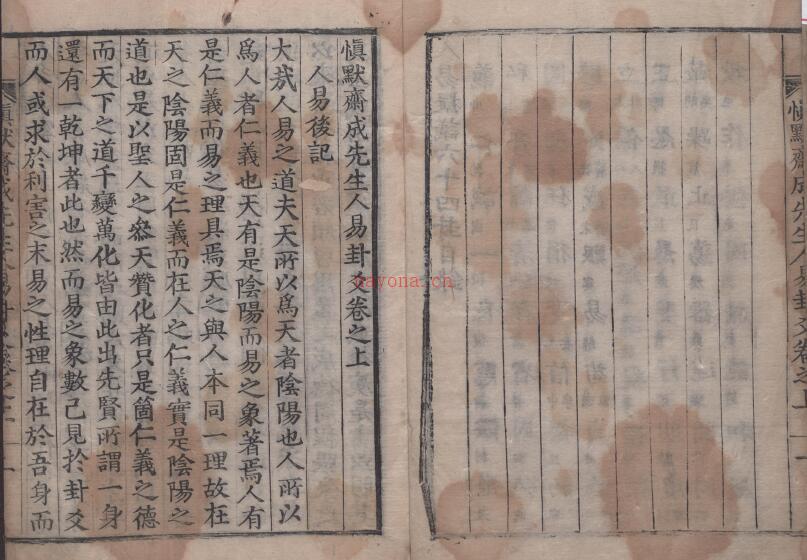 愼默齋成先生人易卦爻卷之上
人易後記
大㢤人易之道夫天所以爲天者陰陽也人所以
爲人者仁義也天有是陰陽而易之象著焉人有
是仁義而易之理具焉天之與人本同一理故在
天之陰陽固是仁義而在人之仁義實是陰陽之
道也是以聖人之叅天贊化者只是箇仁義之德
而天下之道千變萬化皆由此出先賢所謂一身
還有一乾坤者此也然而易之象數已見於卦爻
而人或求於利害之末易之性理自在於吾身而
愼默齋成先生人易卦爻卷之上
nayona.cn